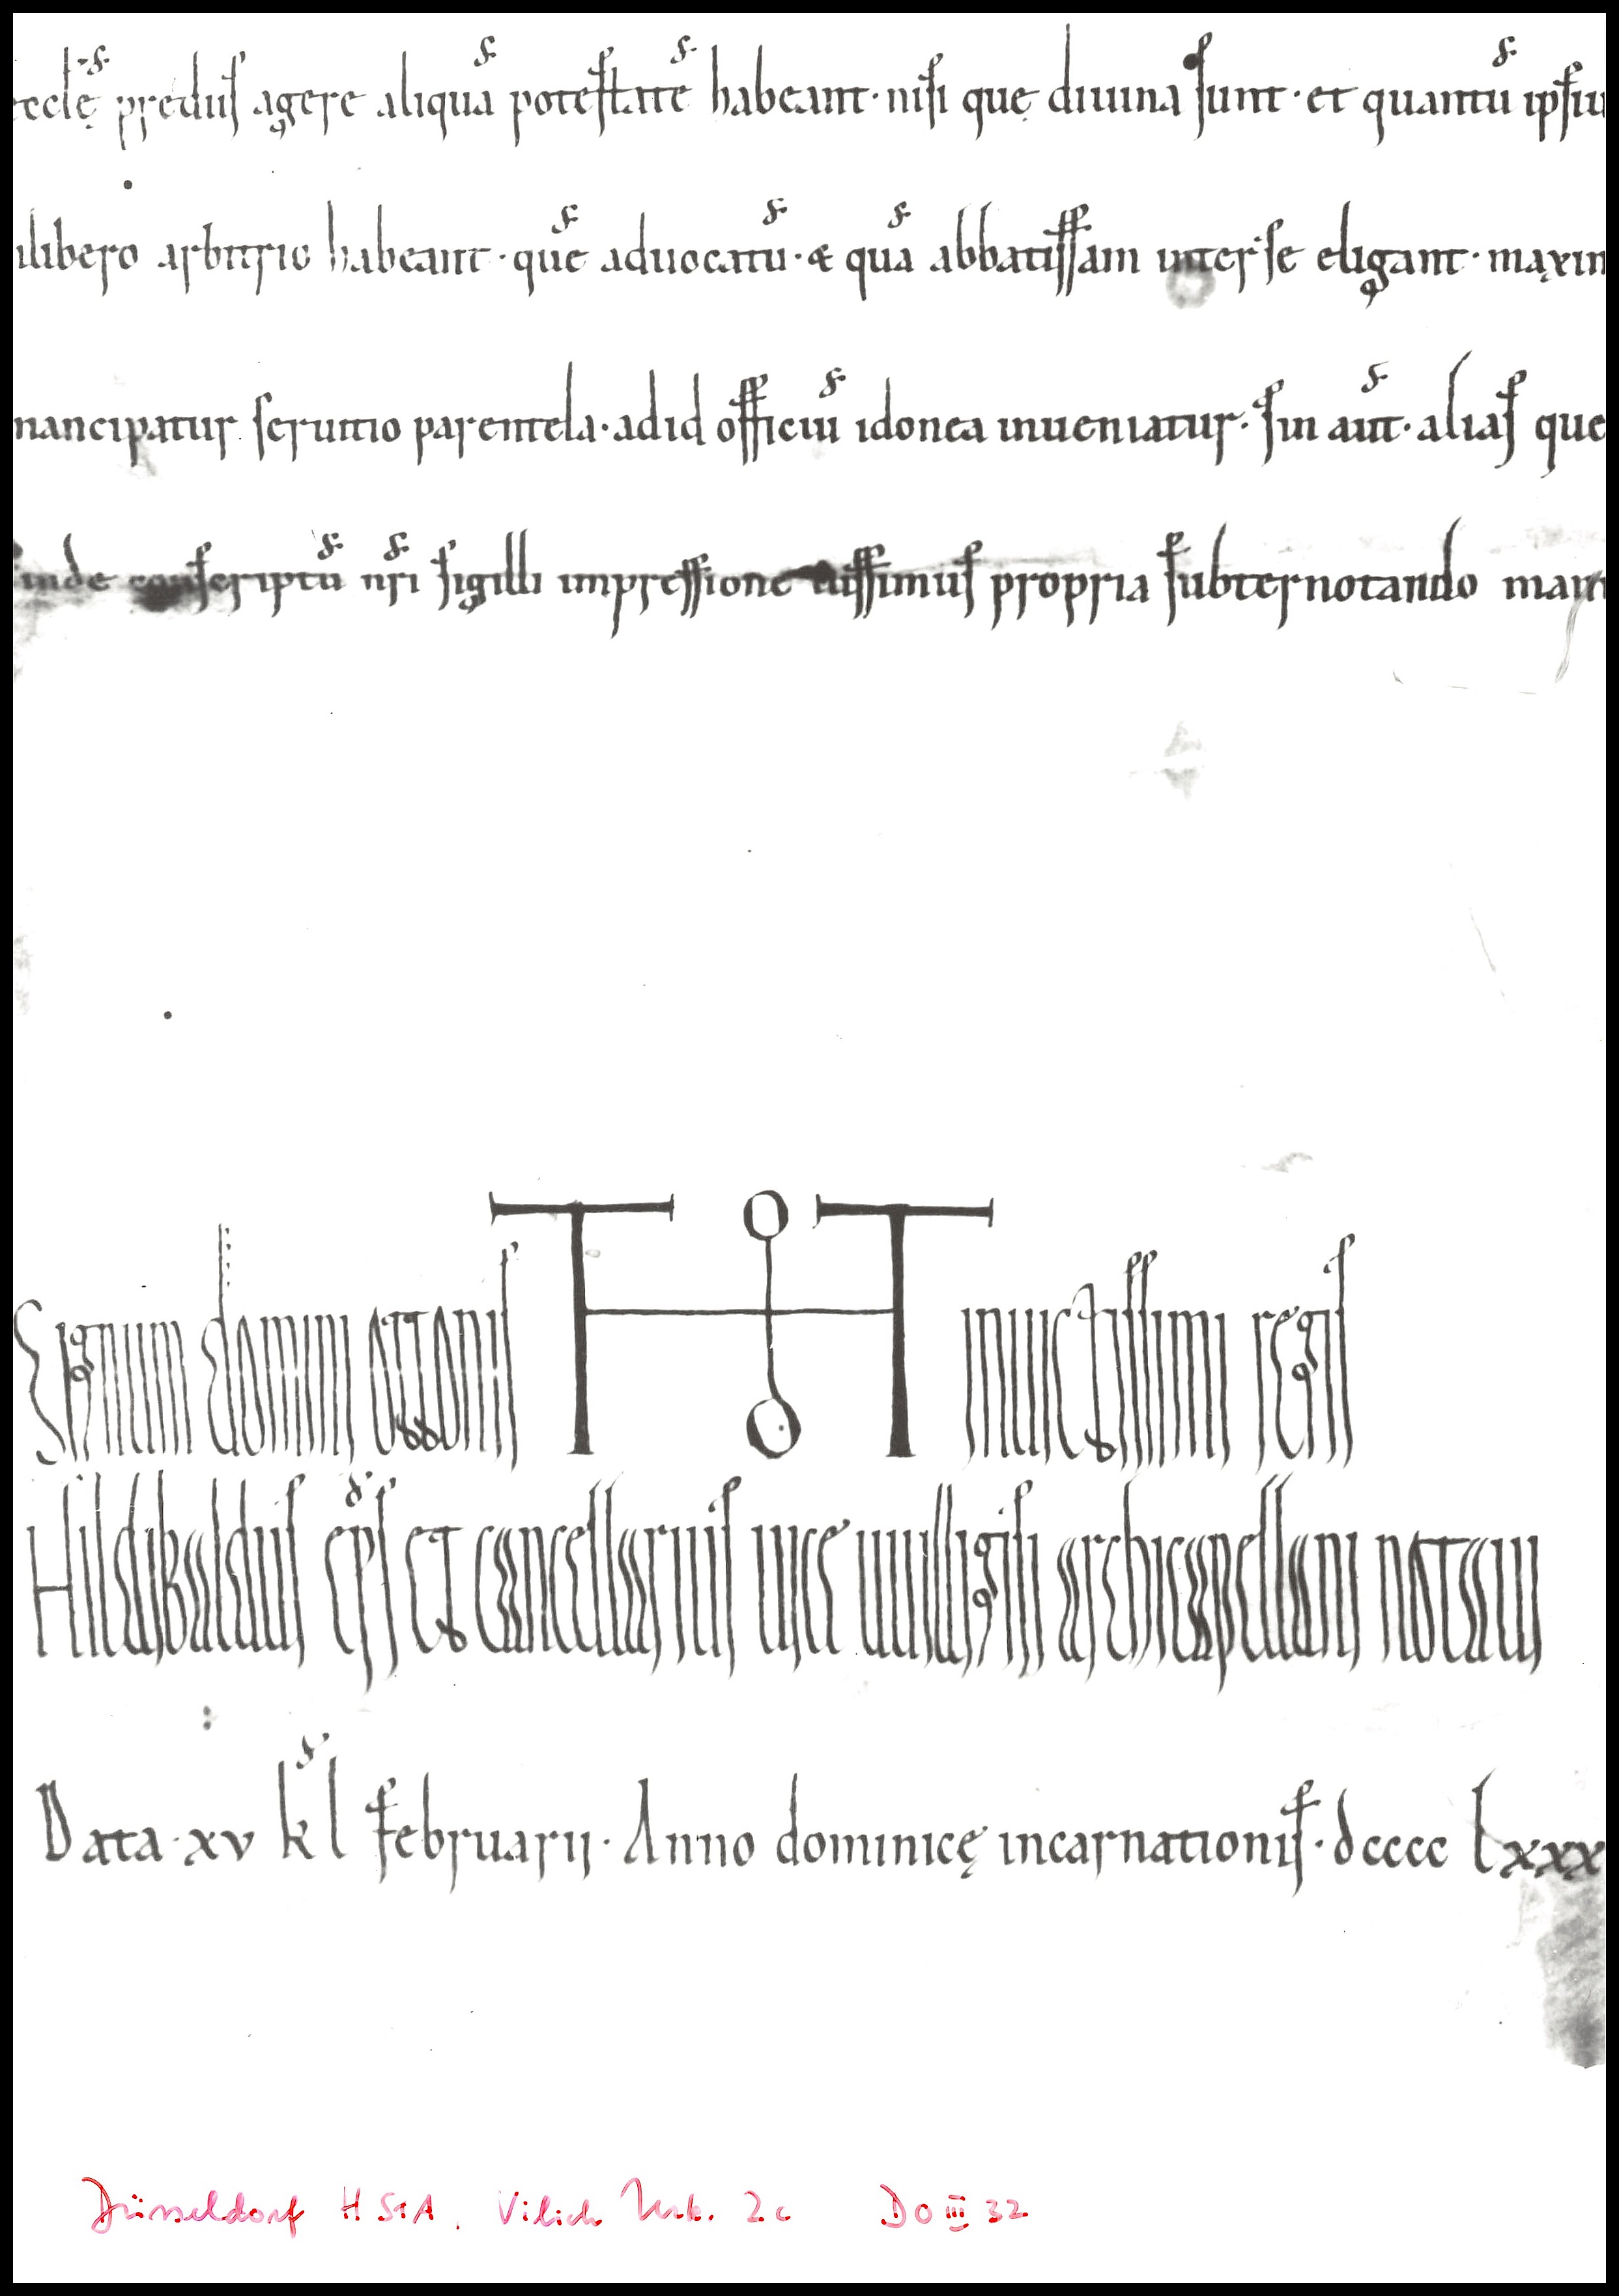 ecclę prediis agere aliquā potestatē habeant · nisi quę diuina sunt · et quantū ipsiu
ilibero arbitrio habeant · quē aduocatū · & quā abbatissam inter se eligant · maxim
mancipatur seruitio parentela · ad id officiū idonea inueniatur · sin aut̄ · alias que
inde conscriptū nr̄i sigilli impressione iussimus propria subternotando manu
Signum domini ottonis inuictissimi regis
Hildibaldus ep̄s et cancellarius uice uuilligisi archicapellani notaui
Data · xv kl̄ februarii · Anno dominicę incarnationis · dcccc lxxx
Düsseldorf HStA. Vilich Urk. 2c DO III 32